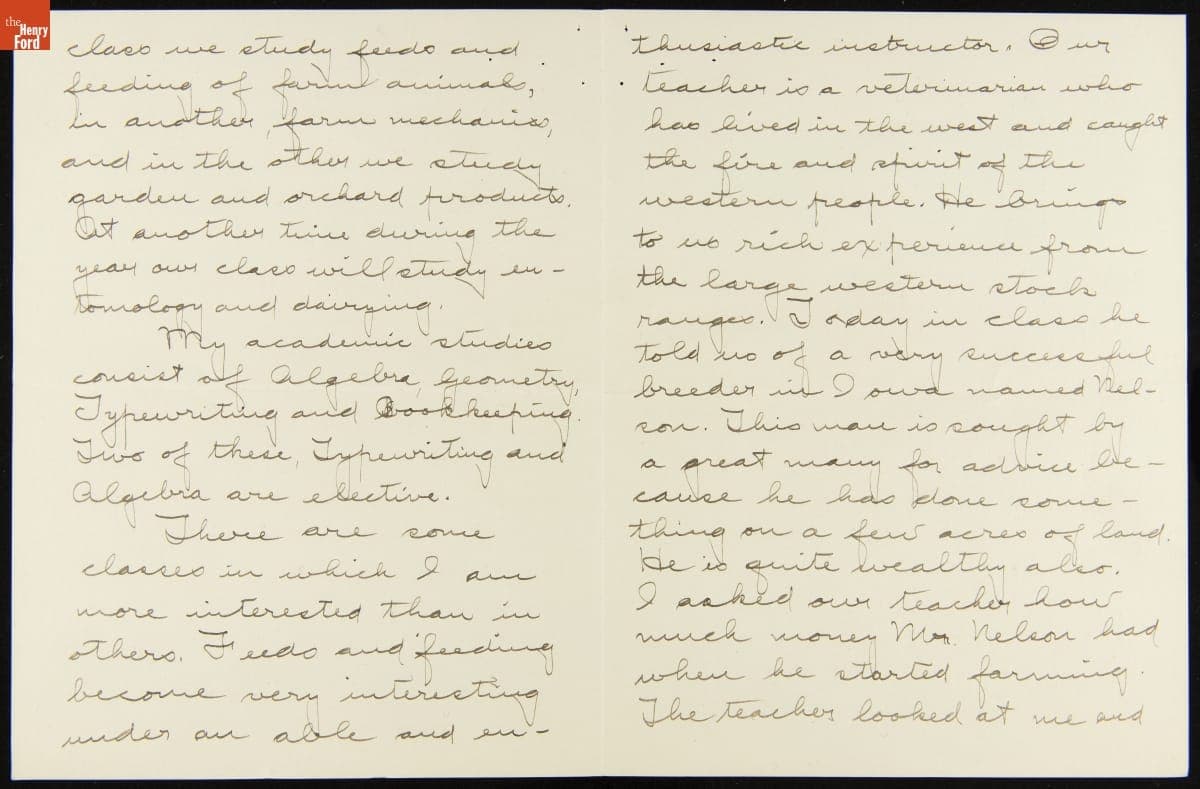 the
Henry
Ford
class we study feeds and
feeding of farm animals,
in another, farm mechanics,
and in the other we study
garden and orchard products.
At another time during the
year our class will study en-
tomology and dairying.
My academic studies
consist of Algebra, Geometry,
Typewriting and Bookkeeping.
Two of these, Typewriting and
Algebra are elective.
There are some
classes in which I am
more interested than in
others. Feeds and feeding
become very interesting
under an able and en-
thusiastic instructor. Our
teacher is a veterinarian who
has lived in the west and caught
the fire and spirit of the
western people. He brings
to us rich experience from
the large western stock
ranges. Today in class he
told us of a very successful
breeder in Iowa named Nel-
son. This man is sought by
a great many for advice be-
cause he has done some-
thing on a few acres of land.
He is quite wealthy also.
I asked our teacher how
much money Mr. Nelson had
when he started farming.
The teacher looked at me and